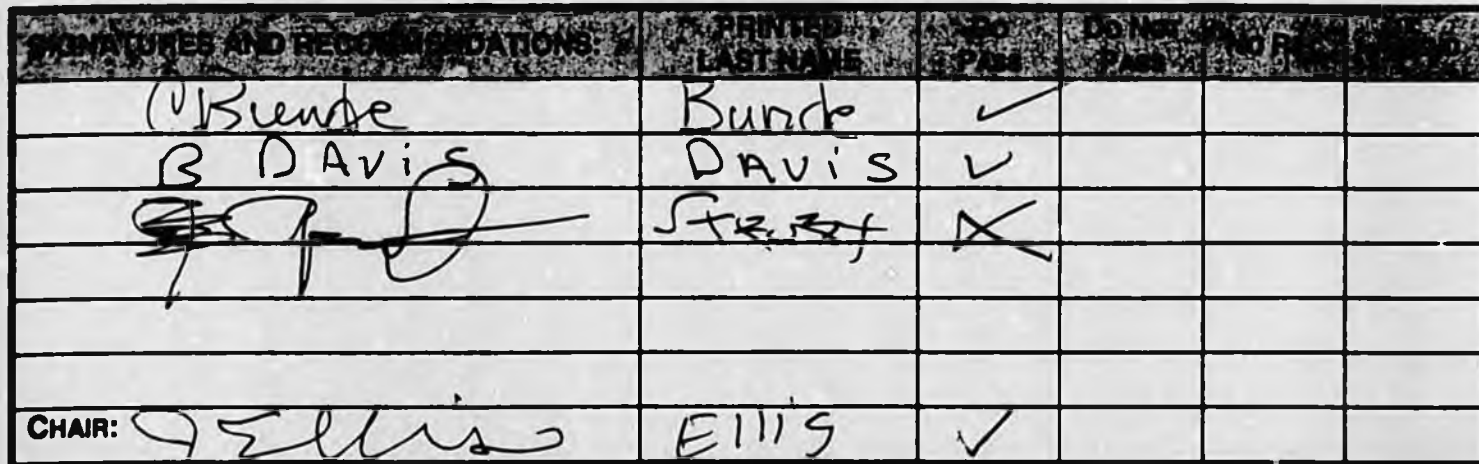 SIGNATURES AND RECOMMENDATIONS: PRINTED LAST NAME DO PASS DO NOT PASS NO REC
C Bunde Bunde ✓
B DAVIS DAVIS ✓
X
CHAIR: J Ellis Ellis ✓